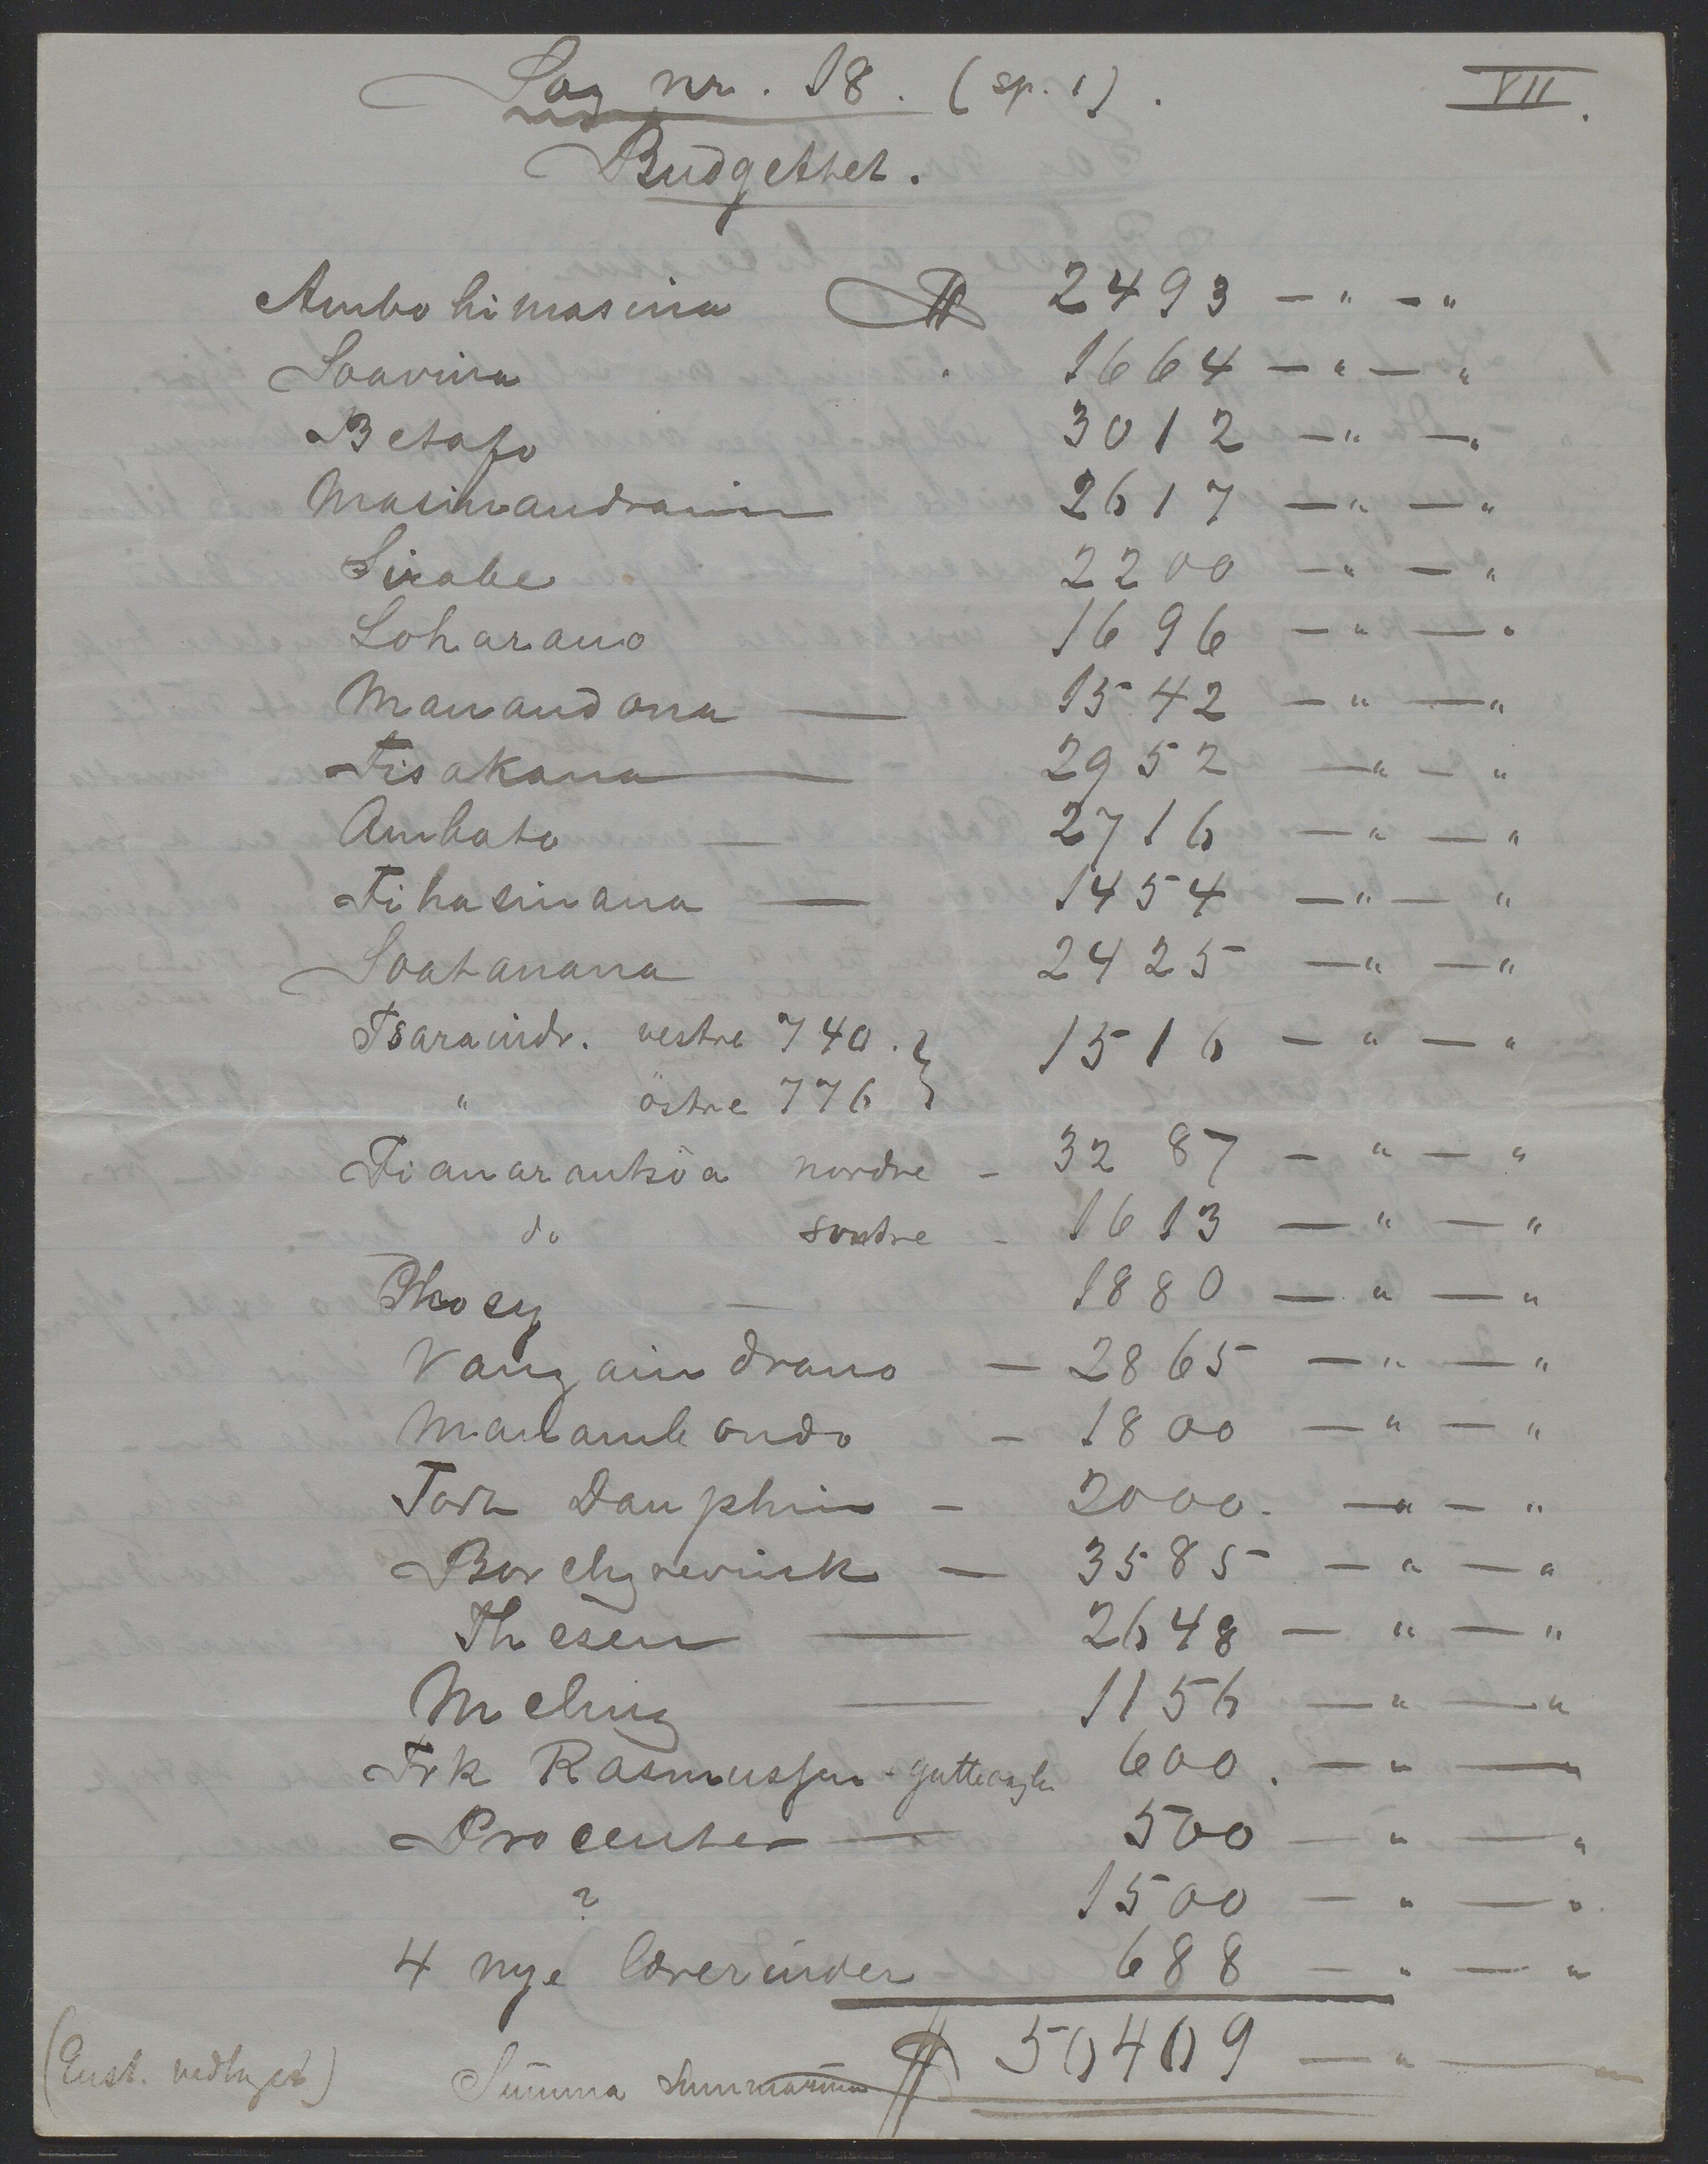 Sag nr. 18. (sp. 1). VII.
Budgettet.
Ambohimasina $ 2493 - " - "
Soavina 1664 - " - "
Betafo 3012 - " - "
Masinandraina 2617 - " - "
Sirabe 2200 - " - "
Loharano 1696 - " - "
Manandona — 1542 - " - "
Fisakana — 2952 - " - "
Ambato — 2716 - " - "
Fihasinana — 1454 - " - "
Soatanana 2425 - " - "
Tsaraindr. vestre 740. } 1516 - " - "
" östre 776 }
Fianarantsoa nordre - 3287 - " - "
do søndre - 1613 - " - "
Ihosy — 1880 - " - "
Vangaindrano — 2865 - " - "
Manambondo - 1800 - " - "
Fort Dauphin - 2000. - " - "
Borchgrevink — 3585 - " - "
Thesen — 2648 - " - "
Meling — 1156 - " - "
Frk Rasmussen - gutteasyl 600. - " - "
Procenter — 500 - " - "
? 1500 - " - "
4 nye lærerinder 688 - " - "
(Enst. vedtaget) Summa Summarum $ 50409 - " - "